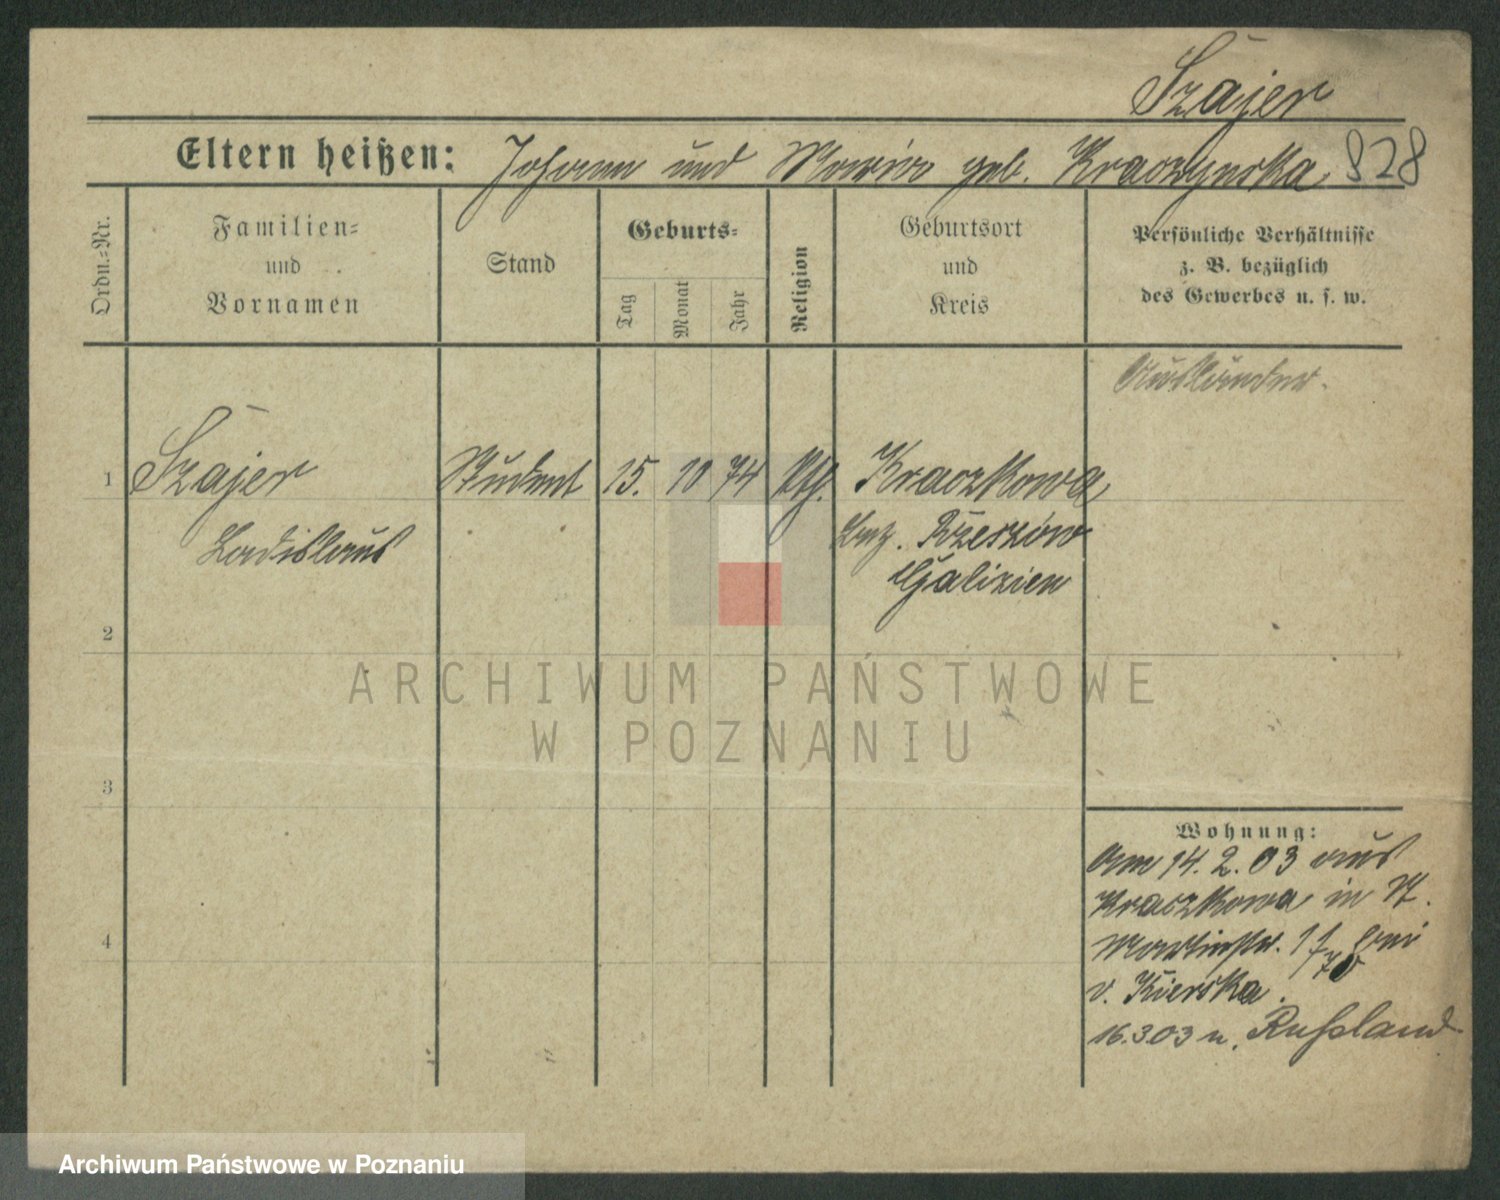 Szajer
Eltern heißen: Johann und Maria geb. Kraczynska 828
Ordn.-Nr.
Familien-
und
Vornamen
Stand
Geburts-
Tag
Monat
Jahr
Religion
Geburtsort
und
Kreis
Persönliche Verhältnisse
z. B. bezüglich
des Gewerbes u. s. w.
Ausländer.
1 Szajer Student 15. 10 74 Kth. Kraczkowa,
Ladislaus Bez. Rzeszów
Galizien
2
3
4
Wohnung:
Am 14. 2. 03 aus
Kraczkowa in
Martinstr. bei
v. Kierska.
16.3.03 n. Rußland
ARCHIWUM PAŃSTWOWE
W POZNANIU
Archiwum Państwowe w Poznaniu